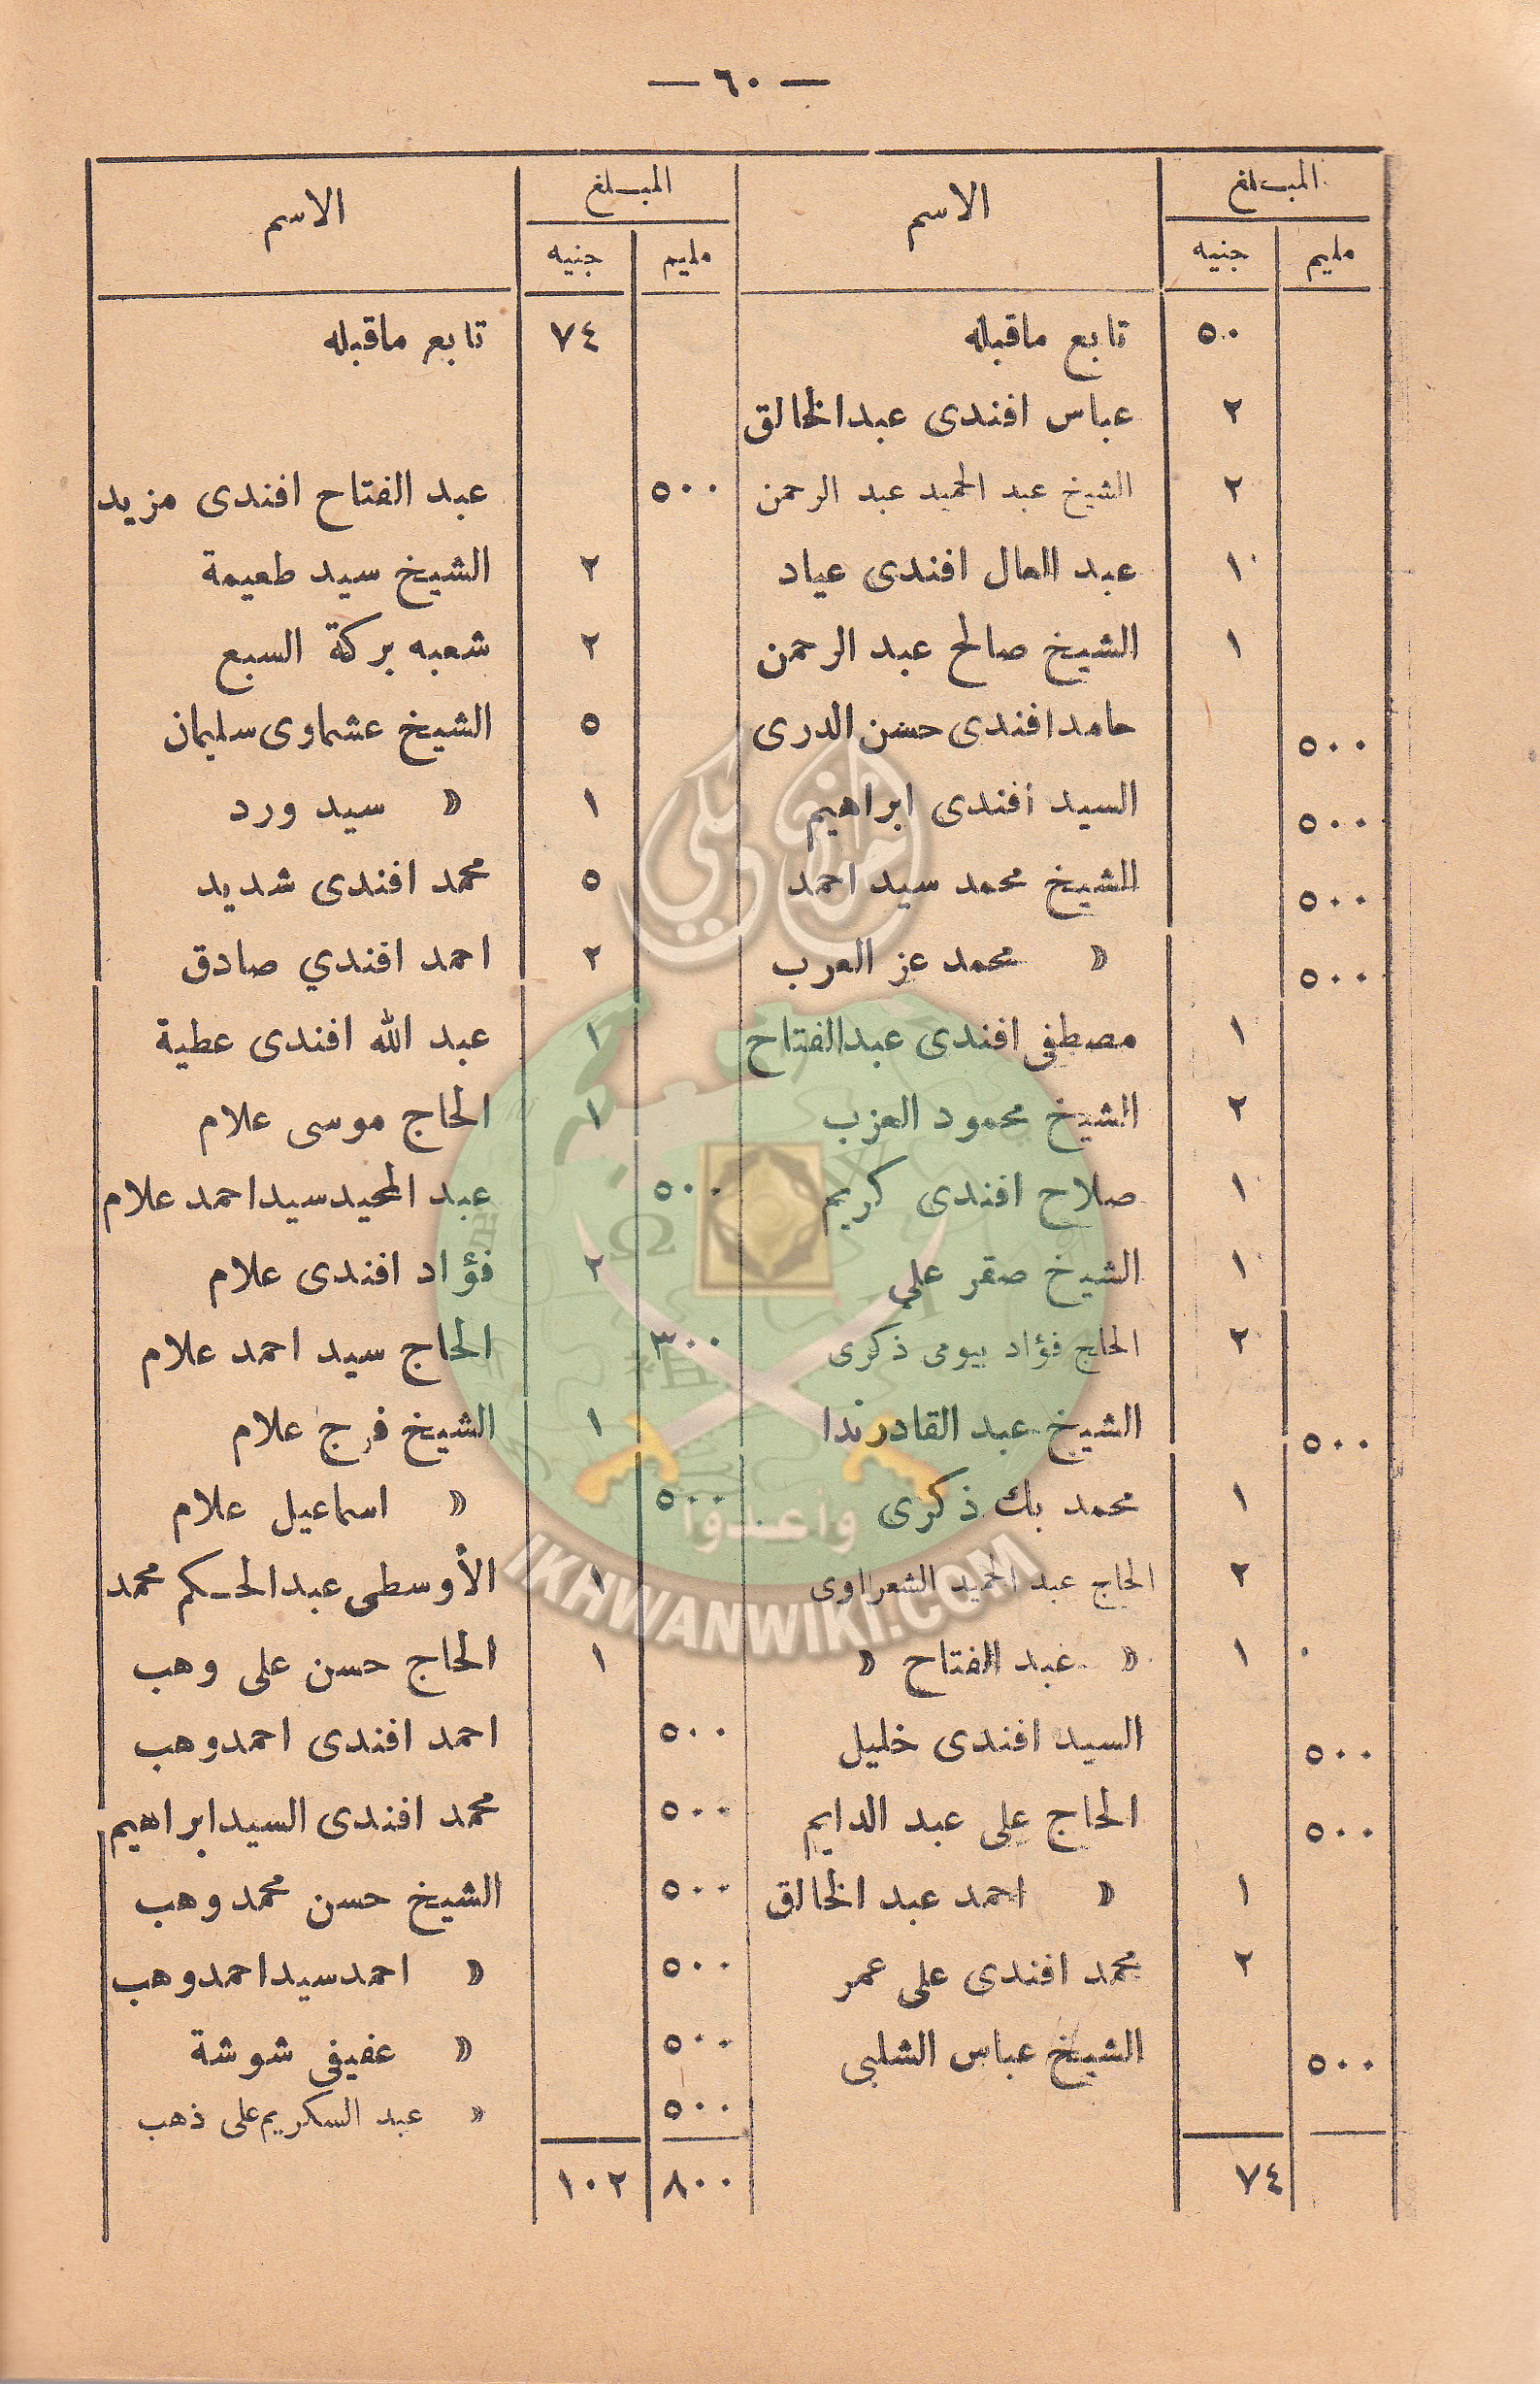 — ٦٠ —
المبلغ الاسم المبلغ الاسم
مليم جنيه مليم جنيه
٥٠ تابع ماقبله
٢ عباس افندى عبدالخالق
٢ الشيخ عبد الحميد عبد الرحمن
١٠ عبد العال افندى عياد
١ الشيخ صالح عبد الرحمن
٥٠٠ حامد افندى حسن الدرى
٥٠٠ السيد افندى ابراهيم
٥٠٠ الشيخ محمد سيد احمد
٥٠٠ » محمد عز العرب
١ مصطفى افندى عبدالفتاح
٢ الشيخ محمود العزب
١٠ صلاح افندى كريم
١٠ الشيخ صقر على
٢ الحاج فؤاد بيومى ذكرى
٥٠٠ الشيخ عبد القادر ندا
١ محمد بك ذكرى
٢ الحاج عبد الحميد الشعراوى
١ » عبد الفتاح »
٥٠٠ السيد افندى خليل
٥٠٠ الحاج على عبد الدايم
١ » احمد عبد الخالق
٢ محمد افندى على عمر
٥٠٠ الشيخ عباس الشلبى
٧٤
٧٤ تابع ماقبله
٥٠٠ عبد الفتاح افندى مزيد
٢ الشيخ سيد طعيمة
٢ شعبه بركة السبع
٥ الشيخ عشماوى سليمان
١ » سيد ورد
٥ محمد افندى شديد
٢ احمد افندي صادق
١ عبد الله افندى عطية
١ الحاج موسى علام
٥٠٠ عبد المجيد سيد احمد علام
٢ فؤاد افندى علام
٣٠٠ الحاج سيد احمد علام
١ الشيخ فرج علام
٥٠٠ » اسماعيل علام
١ الأوسطى عبد الحكم محمد
١ الحاج حسن على وهب
٥٠٠ احمد افندى احمد وهب
٥٠٠ محمد افندى السيد ابراهيم
٥٠٠ الشيخ حسن محمد وهب
٥٠٠ » احمد سيد احمد وهب
٥٠٠ » عفيفى شوشة
٥٠٠ » عبد الكريم على ذهب
٨٠٠ ١٠٢
إخوان ويكي
وأعدوا
IKHWANWIKI.COM